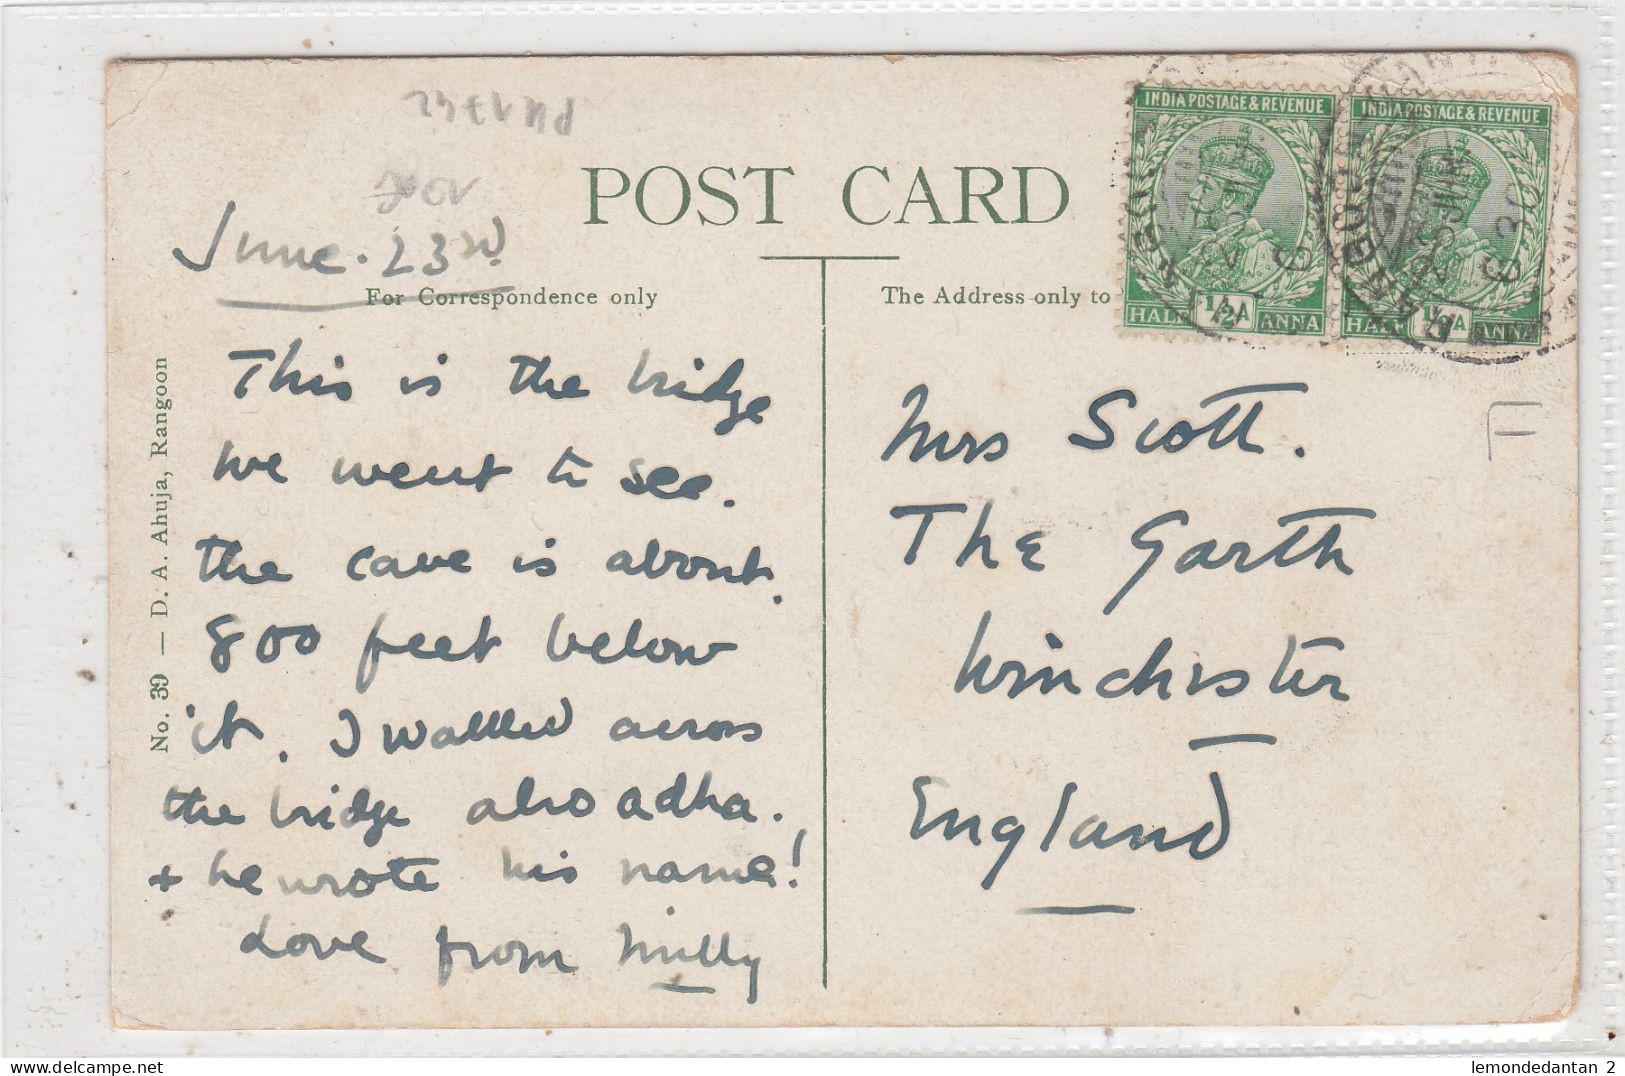 POST CARD
June. 23rd
For Correspondence only
The Address only to
INDIA POSTAGE & REVENUE
INDIA POSTAGE & REVENUE
HALF 1/2A ANNA
HALF 1/2A ANNA
No. 39 — D. A. Ahuja, Rangoon
This is the bridge
we went to see.
the cave is about.
800 feet below
it. I walked across
the bridge also
+ he wrote his name!
Love from Milly
Mrs Scott.
The Garth
Winchester
England
lemondedantan 2